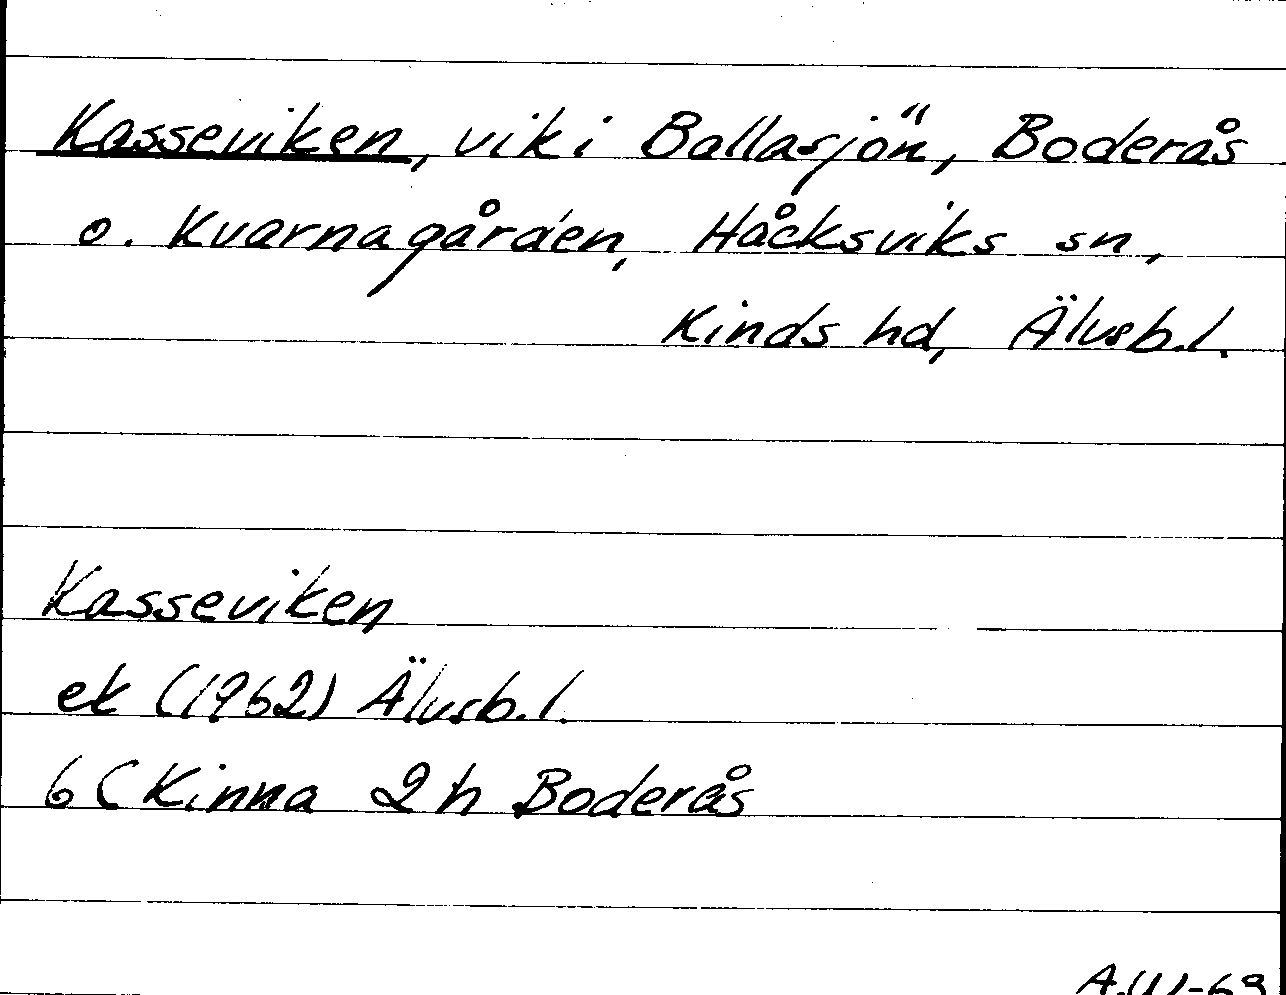 Kasseviken, vik i Ballasjön, Boderås
o. Kvarnagården, Håcksviks sn,
Kinds hd, Älvsb.l.
Kasseviken
ek (1962) Älvsb.l.
6 C Kinna 2 h Boderås